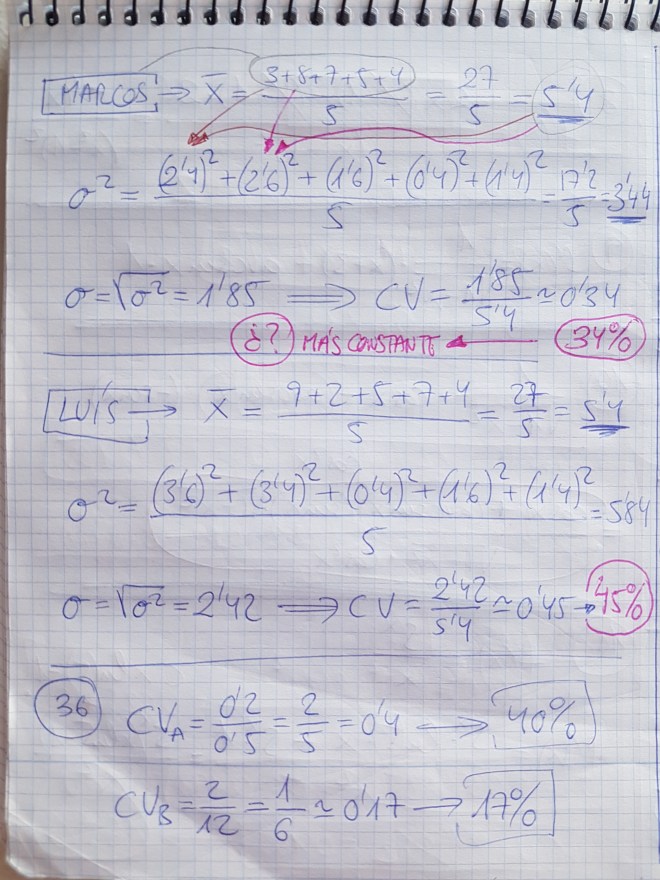 MARCOS → X̄ = (3+8+7+5+4)/5 = 27/5 = 5'4
σ² = ((2'4)² + (2'6)² + (1'6)² + (0'4)² + (1'4)²)/5 = 17'2/5 = 3'44
σ = √σ² = 1'85 ⟹ CV = 1'85/5'4 ≃ 0'34
¿? MÁS CONSTANTE ← 34%
LUÍS → X̄ = (9+2+5+7+4)/5 = 27/5 = 5'4
σ² = ((3'6)² + (3'4)² + (0'4)² + (1'6)² + (1'4)²)/5 = 5'84
σ = √σ² = 2'42 ⟹ CV = 2'42/5'4 ≃ 0'45 → 45%
36 CV_A = 0'2/0'5 = 2/5 = 0'4 → 40%
CV_B = 2/12 = 1/6 ≃ 0'17 → 17%